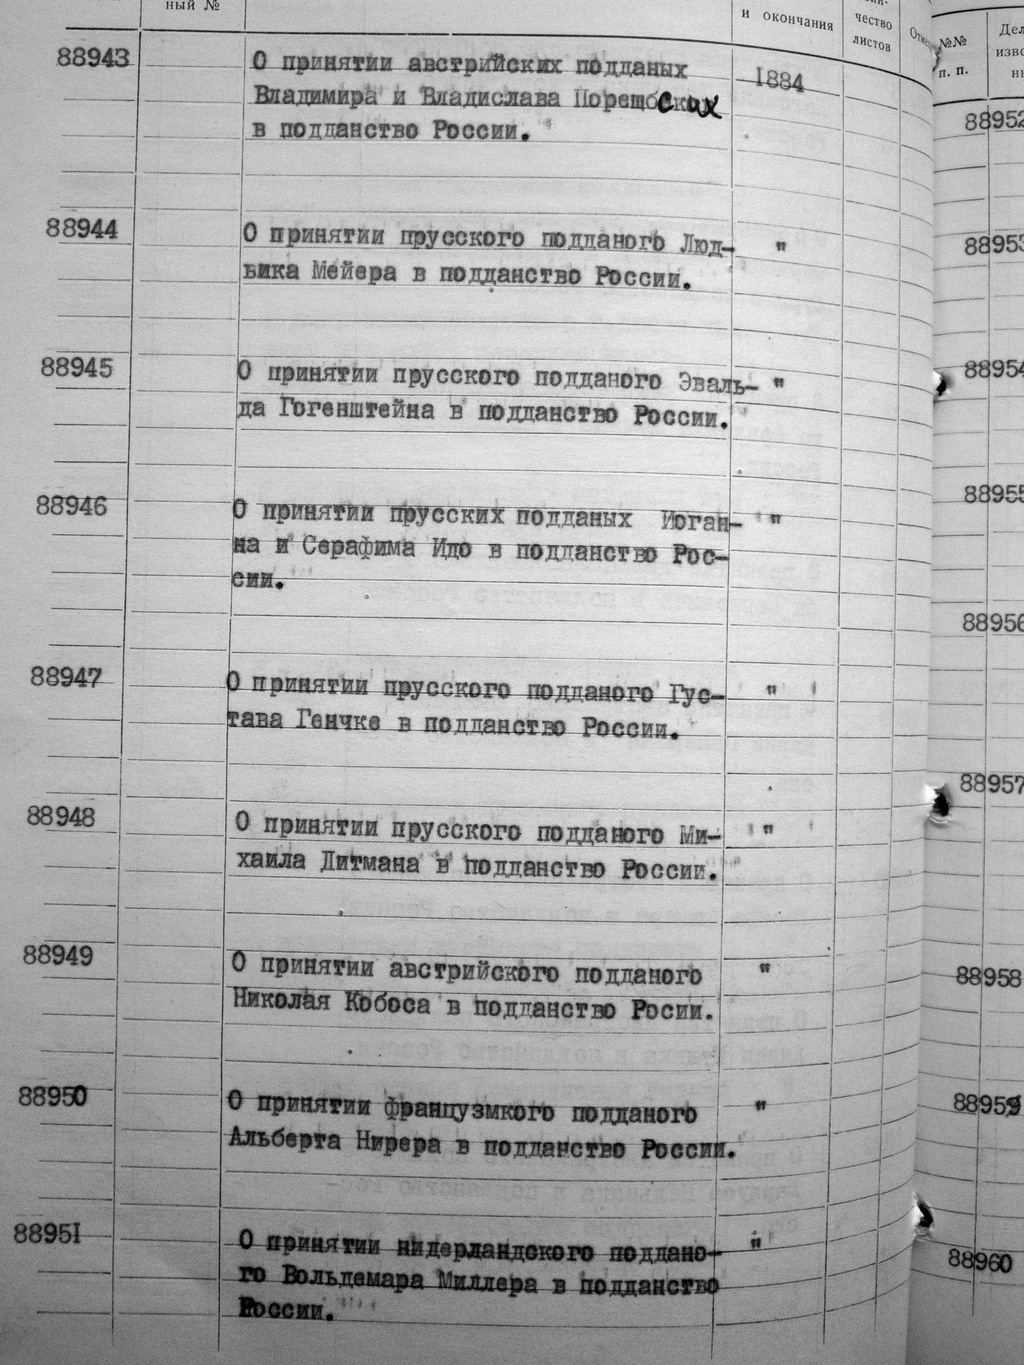 ный №
и окончания
чество
листов
№№
п. п.
88943 О принятии австрийских подданых 1884
Владимира и Владислава
в подданство России.
88944 О принятии прусского подданого Люд- "
вика Мейера в подданство России.
88945 О принятии прусского подданого Эваль- "
да Гогенштейна в подданство России.
88946 О принятии прусских подданых Иоган- "
на и Серафима Идо в подданство Рос-
сии.
88947 О принятии прусского подданого Гус- "
тава Генчке в подданство России.
88948 О принятии прусского подданого Ми- "
хаила Литмана в подданство России.
88949 О принятии австрийского подданого "
Николая Кобоса в подданство Росии.
88950 О принятии французмкого подданого "
Альберта Нирера в подданство России.
8895I О принятии нидерландского поддано- "
го Вольдемара Миллера в подданство
России.
88952
88953
88954
88955
88956
88957
88958
88959
88960